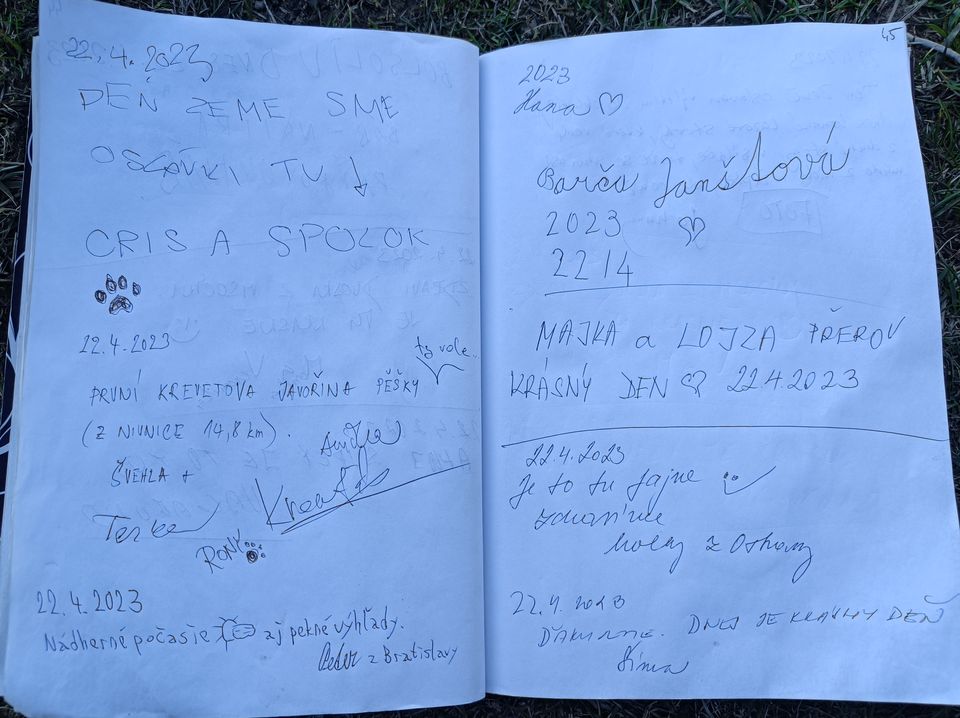 22.4.2023
DEŇ ZEME SME
OSLÁVILI TU
CRIS A SPOLOK
22.4.2023
ty vole..
PRVNÍ KREVETOVA JAVOŘINA PĚŠKY
(Z NIVNICE 14,8 km).
ŠVEHLA +
Terka
RONY
22.4.2023
Nádherné počasie aj pekné výhľady.
Peter z Bratislavy
45
2023
Hana ♡
Barča Janštová
2023 ♡
22 14
MAJKA a LOJZA PŘEROV
KRÁSNÝ DEN ♡ 22.4.2023
22.4.2023
Je to tu fajne
z Ostravy
22.4.2023
ĎAKUJEME. DNES JE KRÁSNY DEŇ
Sima